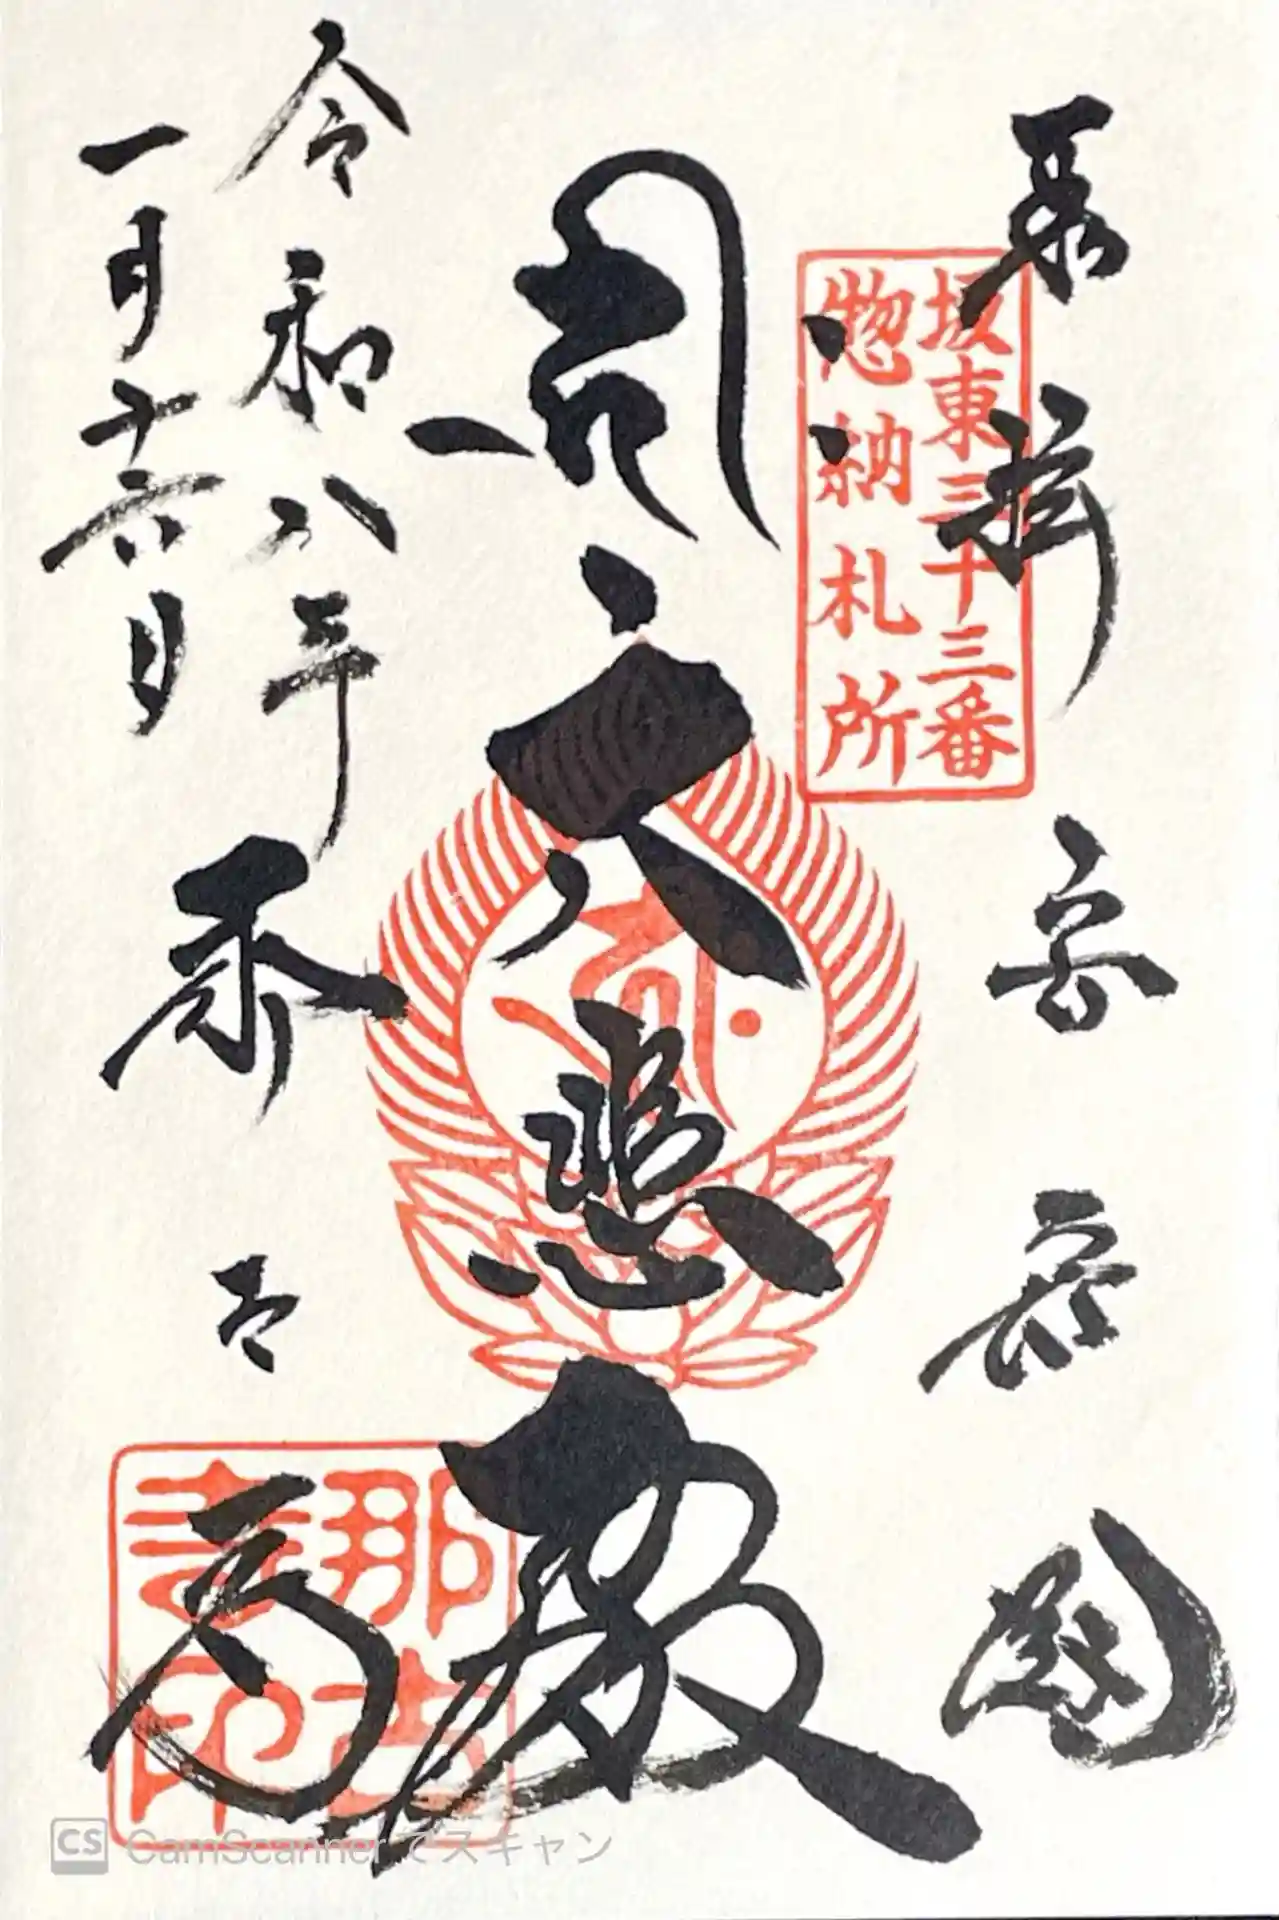 奉拝 安房国
坂東三十三番
惣納札所
大悲殿
令和八年
一月十六日
那古
寺印
CS CamScanner でスキャン